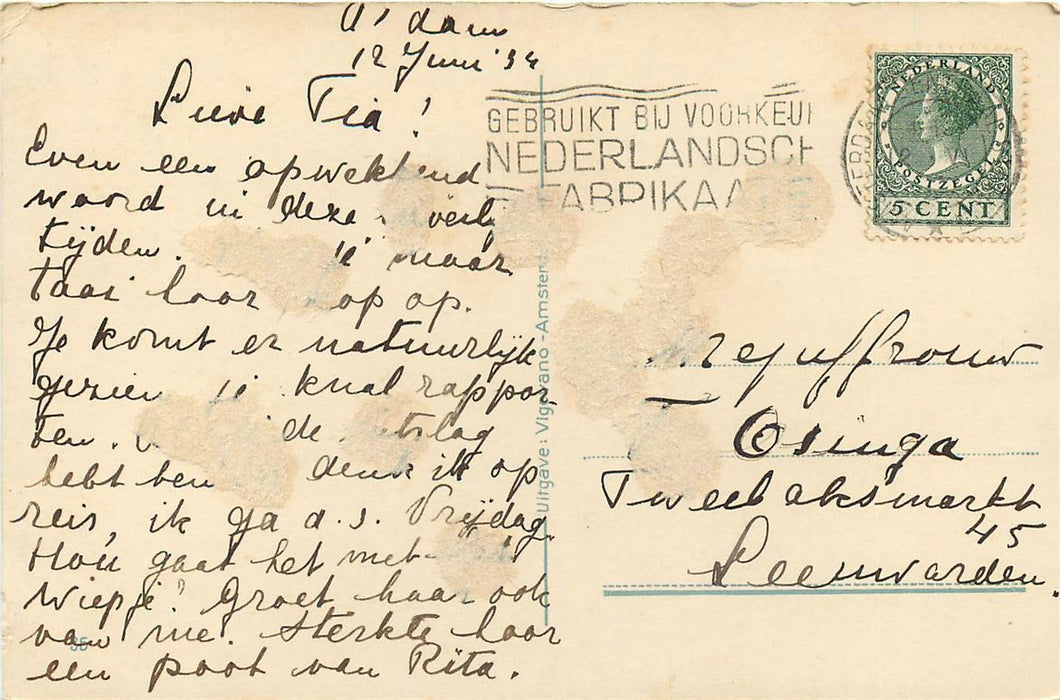 A'dam
12 Juni '34
Lieve Tia!
Even een opwekkend
woord in deze
tijden. maar
hoor op op.
Je komt er natuurlijk
gezien knal rappor
ten. de uitslag
hebt ben denk ik op
reis, ik ga a.s. Vrijdag.
Hoe gaat het met
Wiepje? Groet haar ook
van me. Sterkte hoor
een poot van Rita.
35
Uitgave: Vigevano - Amsterd.
GEBRUIKT BIJ VOORKEUR
NEDERLANDSCH
FABRIKAA
NEDERLAND
POSTZEGEL
5 CENT
Mejuffrouw
Osinga
Tweebaksmarkt
45
Leeuwarden.